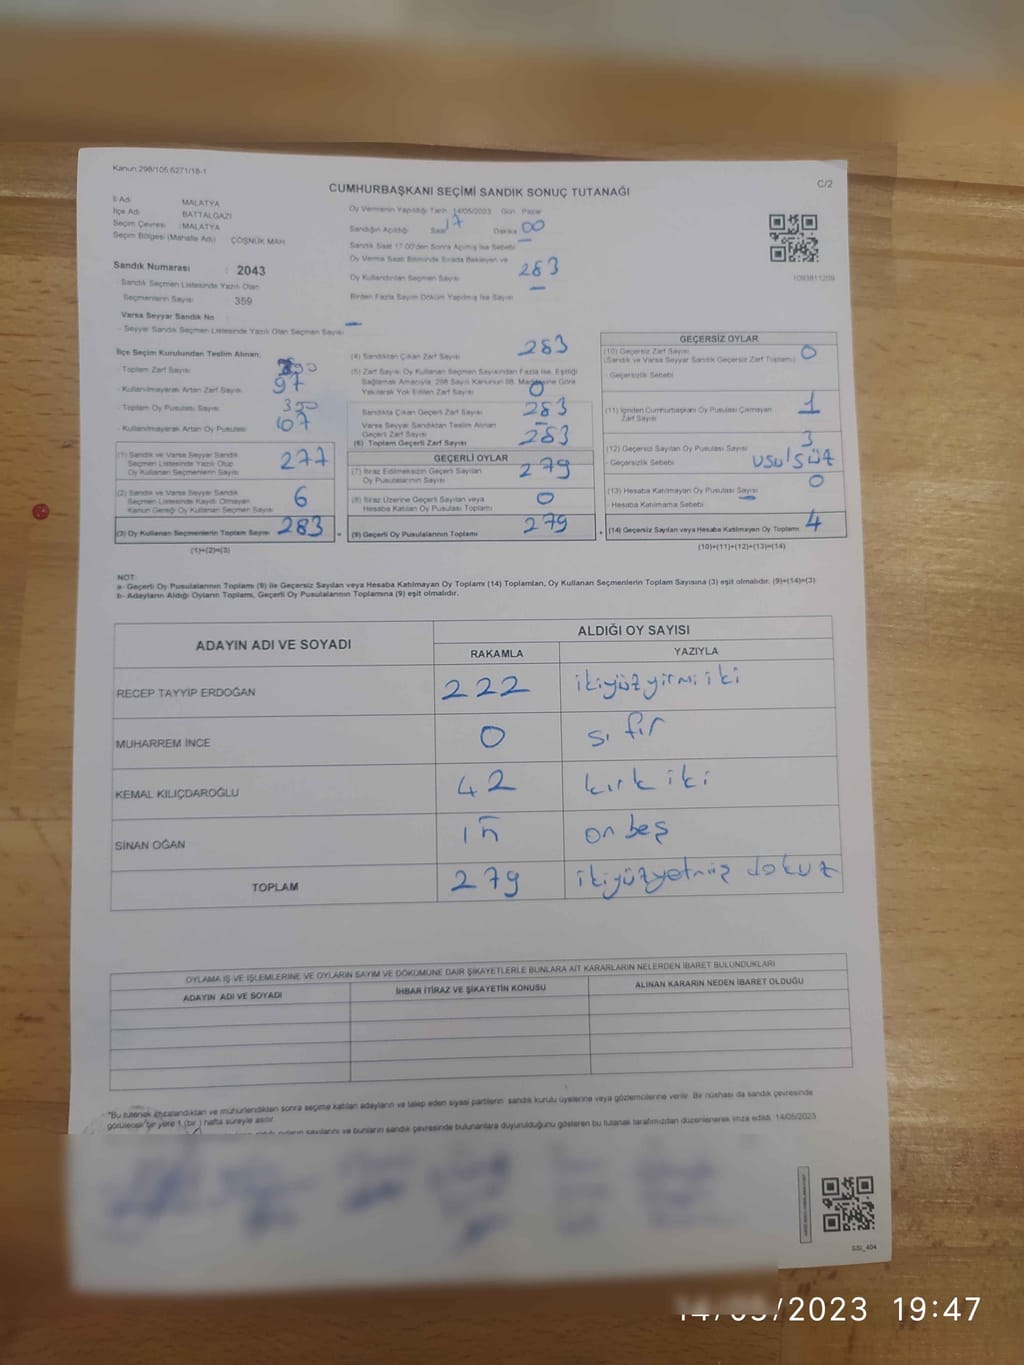 Kanun:298/105;6271/18-1
CUMHURBAŞKANI SEÇİMİ SANDIK SONUÇ TUTANAĞI
C/2
İl Adı MALATYA
İlçe Adı BATTALGAZİ
Seçim Çevresi :MALATYA
Seçim Bölgesi (Mahalle Adı) ÇOŞNÜK MAH
Sandık Numarası : 2043
Sandık Seçmen Listesinde Yazılı Olan
Seçmenlerin Sayısı 359
Varsa Seyyar Sandık No
- Seyyar Sandık Seçmen Listesinde Yazılı Olan Seçmen Sayısı -
Oy Vermenin Yapıldığı Tarih 14/05/2023 Gün Pazar
Sandığın Açıldığı Saat 17 Dakika 00
Sandık Saat 17:00'den Sonra Açılmış İse Sebebi -
Oy Verme Saati Bitiminde Sırada Bekleyen ve
Oy Kullandırılan Seçmen Sayısı 283
Birden Fazla Sayım Döküm Yapılmış İse Sayısı -
1093811209
İlçe Seçim Kurulundan Teslim Alınan;
- Toplam Zarf Sayısı
- Kullanılmayarak Artan Zarf Sayısı 97
- Toplam Oy Pusulası Sayısı 350
- Kullanılmayarak Artan Oy Pusulası 67
(1) Sandık ve Varsa Seyyar Sandık
Seçmen Listesinde Yazılı Olup
Oy Kullanan Seçmenlerin Sayısı 277
(2) Sandık ve Varsa Seyyar Sandık
Seçmen Listesinde Kayıtlı Olmayan
Kanun Gereği Oy Kullanan Seçmen Sayısı 6
(3) Oy Kullanan Seçmenlerin Toplam Sayısı 283
(1)+(2)=(3)
(4) Sandıktan Çıkan Zarf Sayısı 283
(5) Zarf Sayısı Oy Kullanan Seçmen Sayısından Fazla İse, Eşitliği
Sağlamak Amacıyla; 298 Sayılı Kanunun 98. Maddesine Göre
Yakılarak Yok Edilen Zarf Sayısı 0
Sandıkta Çıkan Geçerli Zarf Sayısı 283
Varsa Seyyar Sandıktan Teslim Alınan
Geçerli Zarf Sayısı -
(6) Toplam Geçerli Zarf Sayısı 283
GEÇERLİ OYLAR
(7) İtiraz Edilmeksizin Geçerli Sayılan
Oy Pusulasının Sayısı 279
(8) İtiraz Üzerine Geçerli Sayılan veya
Hesaba Katılan Oy Pusulası Toplamı 0
(9) Geçerli Oy Pusulalarının Toplamı 279
GEÇERSİZ OYLAR
(10) Geçersiz Zarf Sayısı
(Sandık ve Varsa Seyyar Sandık Geçersiz Zarf Toplamı) 0
- Geçersizlik Sebebi
(11) İçinden Cumhurbaşkanı Oy Pusulası Çıkmayan
Zarf Sayısı 1
(12) Geçersiz Sayılan Oy Pusulası Sayısı 3
- Geçersizlik Sebebi usulsüz
(13) Hesaba Katılmayan Oy Pusulası Sayısı 0
- Hesaba Katılmama Sebebi -
(14) Geçersiz Sayılan veya Hesaba Katılmayan Oy Toplamı 4
(10)+(11)+(12)+(13)=(14)
NOT:
a- Geçerli Oy Pusulalarının Toplamı (9) ile Geçersiz Sayılan veya Hesaba Katılmayan Oy Toplamı (14) Toplamları, Oy Kullanan Seçmenlerin Toplam Sayısına (3) eşit olmalıdır. (9)+(14)=(3)
b- Adayların Aldığı Oyların Toplamı, Geçerli Oy Pusulalarının Toplamına (9) eşit olmalıdır.
ADAYIN ADI VE SOYADI ALDIĞI OY SAYISI
RAKAMLA YAZIYLA
RECEP TAYYİP ERDOĞAN 222 ikiyüzyirmi iki
MUHARREM İNCE 0 sıfır
KEMAL KILIÇDAROĞLU 42 kırk iki
SİNAN OĞAN 15 on beş
TOPLAM 279 ikiyüzyetmiş dokuz
OYLAMA İŞ VE İŞLEMLERİNE VE OYLARIN SAYIM VE DÖKÜMÜNE DAİR ŞİKAYETLERLE BUNLARA AİT KARARLARIN NELERDEN İBARET BULUNDUKLARI
ADAYIN ADI VE SOYADI İHBAR İTİRAZ VE ŞİKAYETİN KONUSU ALINAN KARARIN NEDEN İBARET OLDUĞU
"Bu tutanak imzalandıktan ve mühürlendikten sonra seçime katılan adayların ve talep eden siyasi partilerin sandık kurulu üyelerine veya gözlemcilerine verilir. Bir nüshası da sandık çevresinde
görülecek bir yere 1 (bir ) hafta süreyle asılır.
sayılarını ve bunların sandık çevresinde bulunanlara duyurulduğunu gösteren bu tutanak tarafımızdan düzenlenerek imza edildi. 14/05/2023
SSİ_404
14/05/2023 19:47